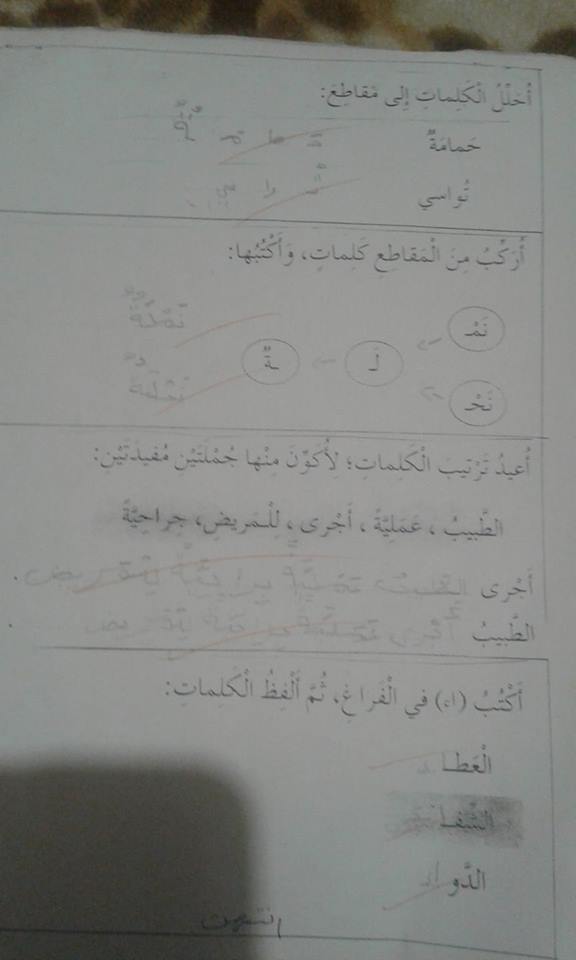 أُحَلِّلُ الْكَلِماتِ إِلى مَقاطِعَ:
حَمامَةٌ
تُواسي
أُرَكِّبُ مِنَ الْمَقاطِعِ كَلِماتٍ، وَأَكْتُبُها:
نَمْـ
نَمْلَةٌ
لَـ
ـةٌ
نَحْـ
نَحْلَة
أُعيدُ تَرْتيبَ الْكَلِماتِ؛ لِأُكَوِّنَ مِنْها جُمْلَتَيْنِ مُفيدَتَيْنِ:
الطَّبيبُ ، عَمَلِيَّةً ، أَجْرى ، لِلْمَريضِ، جِراحِيَّةً
أَجْرى الطبيب عملية جراحية للمريض .
الطَّبيبُ أجرى عملية جراحية للمريض .
أَكْتُبُ (اء) في الْفَراغِ، ثُمَّ أَلْفِظُ الْكَلِماتِ:
الْعَطـاء
الشِّفـاء
الدَّواء
انتهت